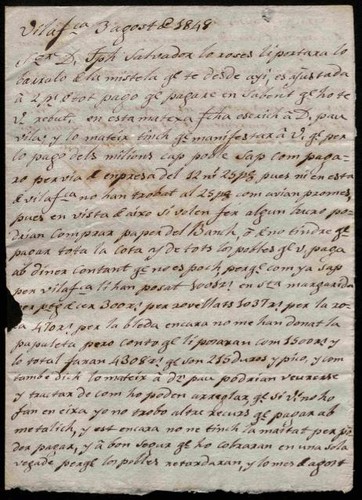 Vilafca 3 agost de 1848
Sor D. Jph Salvador lo roses li portara lo
carrato de la mistela qe te desde ayi, es ajustada
à 2 pts de tot pago qe pagare en Sabent qe ho te
V. rebut, en esta matexa fcha escrich à D. pau
Vilar y lo mateix tinch qe manifestar à V. qe per
lo pago dels milions cap poble Sap com paga-
ro per via de enpresa del 12 ni 25 p% pues ni en esta
de vilafca no han trobat al 25 p% com avian promes,
pues en vista de aixo si volen fer algun lucro po-
drian comprar paper del Banch pr qe no tindre qe
pagar tota la Cota y de tots los pobles qe V. paga
ab diner contant qe no es poch perqe com ya Sap
per vilafca li han posat 1005 en Sta margarida
per 300 per rovellats 1037 per la ro
470 per la bleda encara no me han donat la
papaleta pero conto qe li posaran com 1500 rs y
lo total faran 4308 qe son 215 duros y pico, y com
tambe dich lo mateix à Dn pau podrian veurerse
y tractar de com ho poden arreglar qe si V. no ho
fan en eixa yo no trobo altre recurs qe pagar ab
metalich, y est encara no ne tinch la maitat per po-
der pagar, y à bon segur qe ho cobraran en una sola
vegade perqe los pobles retardaran, y lo mes de agost